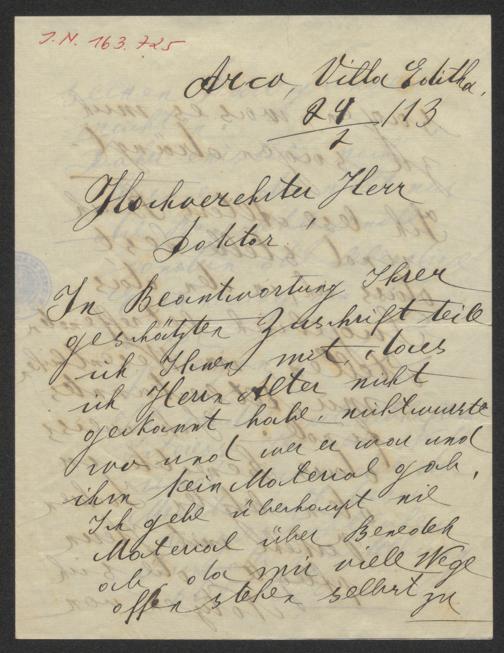 I.N. 163.725
Arco, Villa Editha,
24/2 /13
Hochverehrter Herr
Doktor!
In Beantwortung Ihrer
geschätzten Zuschrift teile
ich Ihnen met, dass
ich Herrn Alter nicht
gekannt habe, nicht wusste
wo und wer er war und
ihm kein Material gab.
Ich gebe überhaupt nie
Material über Benedek
ab da mir viele Wege
offen stehen selbst zu